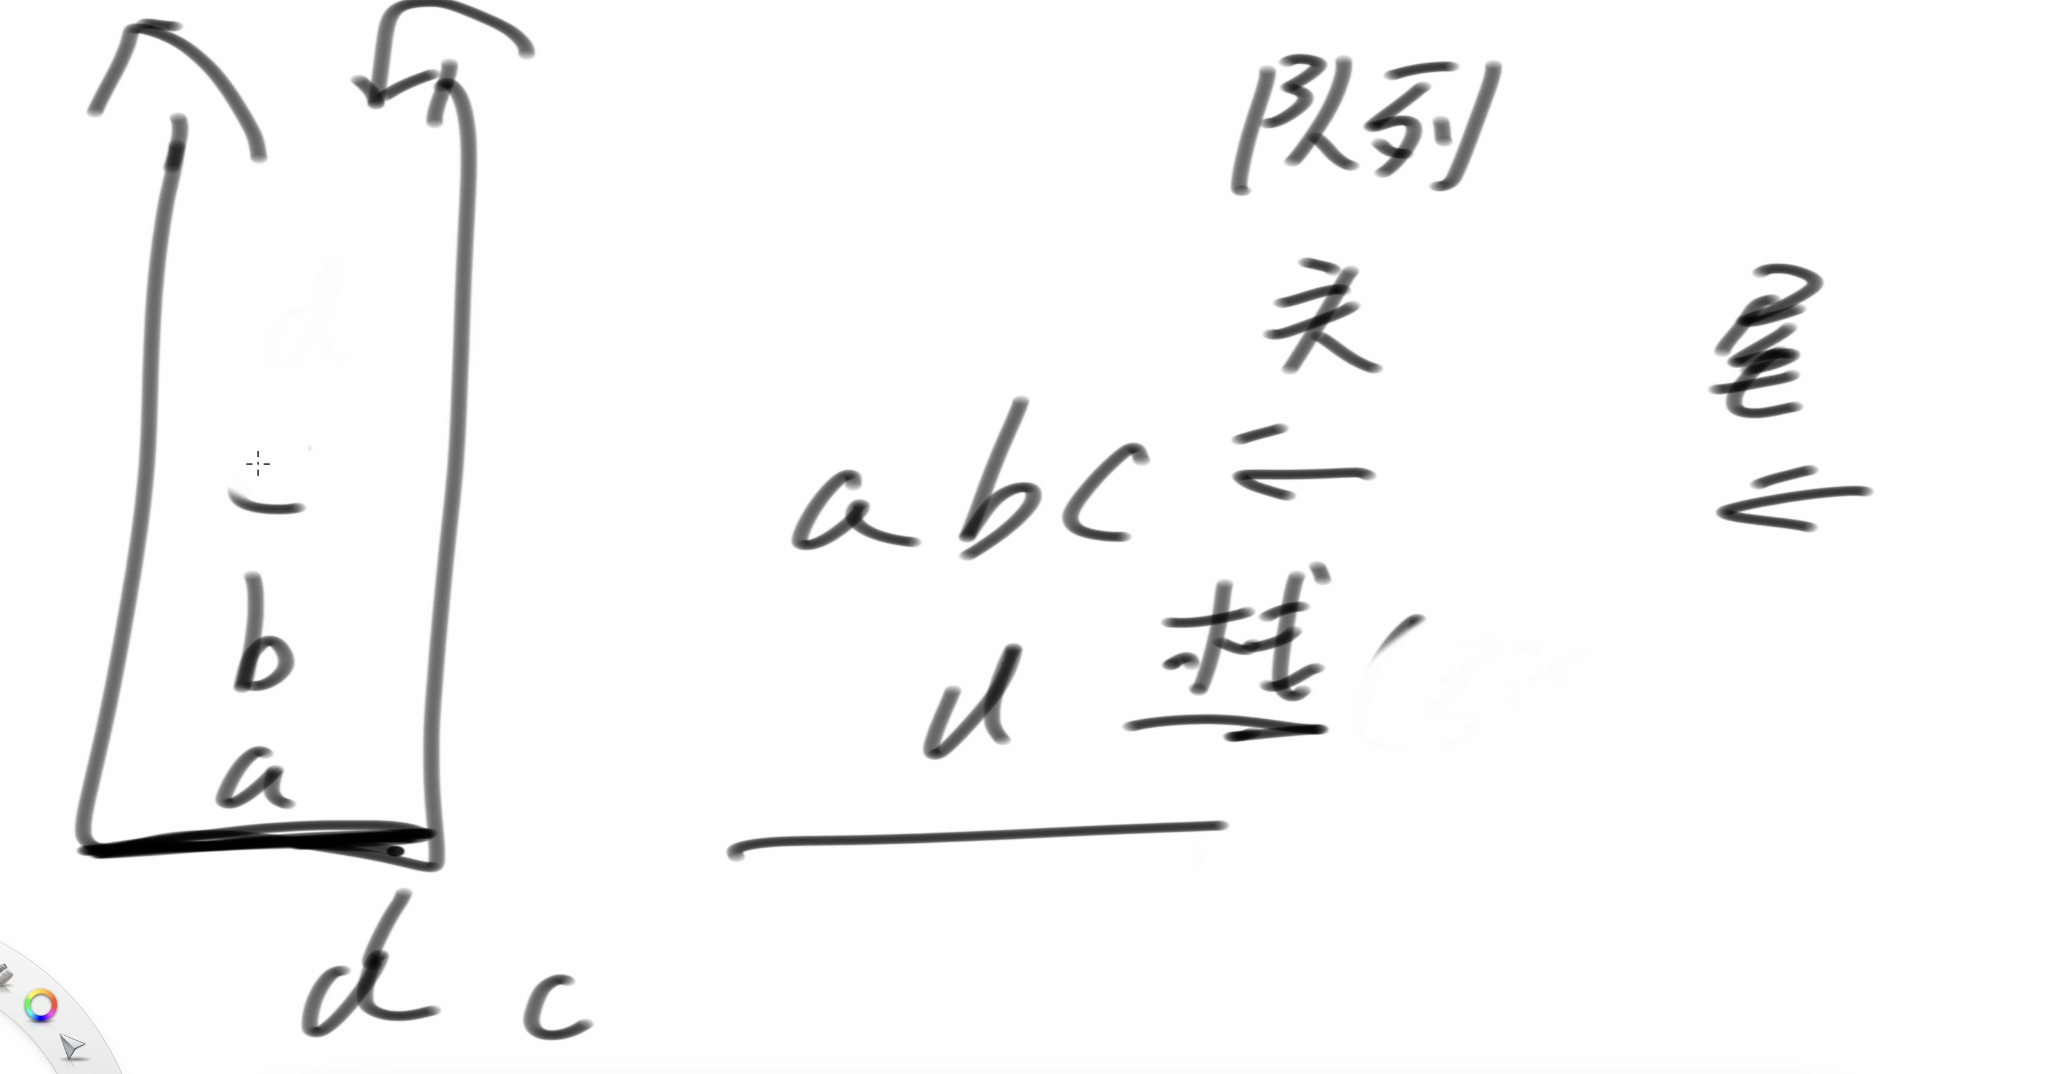 队列
头 尾
a b c
栈
d
b
a
d c